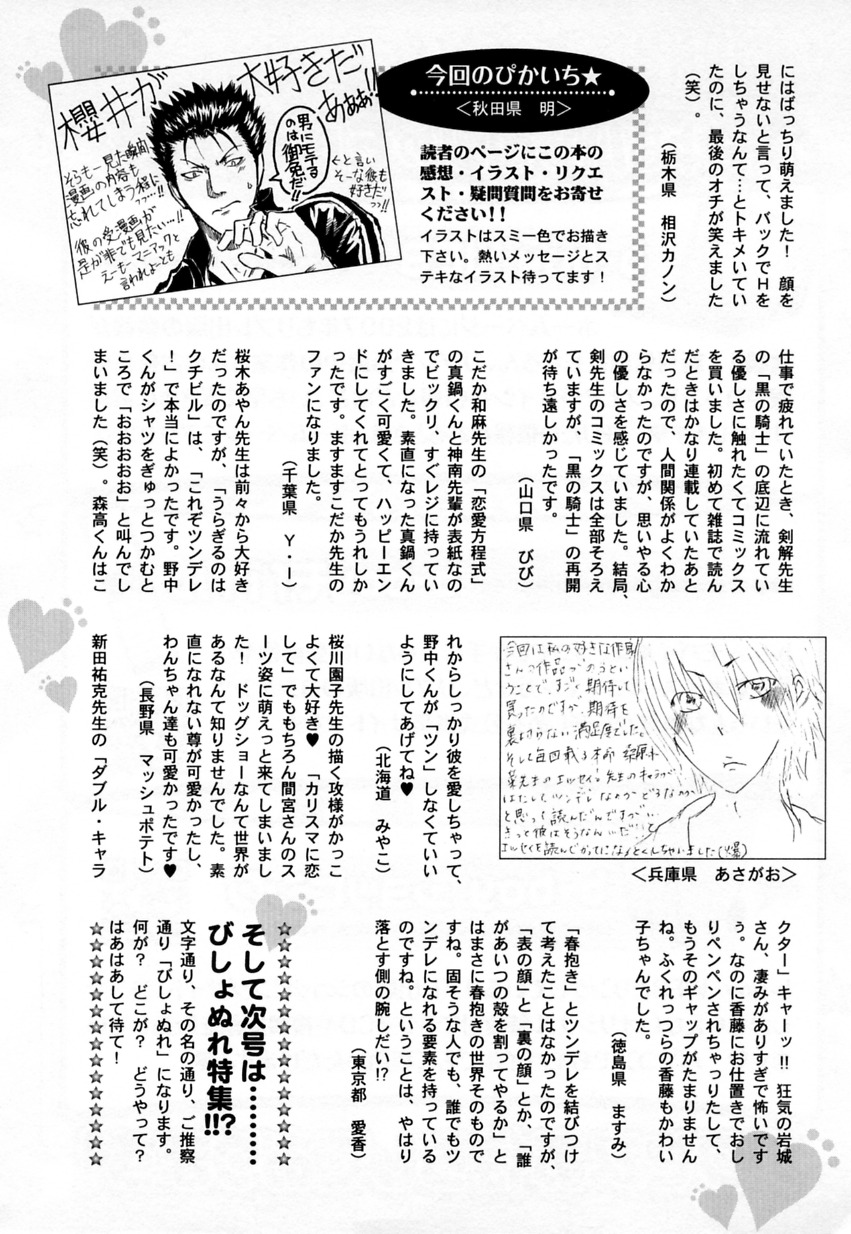 にはばっちり萌えました！　顔を
見せないと言って、バックでＨを
しちゃうなんて…とトキメいてい
たのに、最後のオチが笑えました
（笑）。
（栃木県　相沢カノン）
今回のぴかいち★
＜秋田県　明＞
読者のページにこの本の
感想・イラスト・リクエ
スト・疑問質問をお寄せ
ください！！
イラストはスミ一色でお描き
下さい。熱いメッセージとス
テキなイラスト待ってます！
櫻井が
大好きだ
あああ!!
男にモテる
のは御免だ!!
＜と言い
そーな彼も
好きだ
っっ!!
そらもー見た瞬間
漫画の内容も
忘れてしまう程に
っっ…!!
彼の受漫画が
是が非でも見たい…!!
えーもーマニアックと
言われよーとも
仕事で疲れていたとき、剣解先生
の「黒の騎士」の底辺に流れてい
る優しさに触れたくてコミックス
を買いました。初めて雑誌で読ん
だときはかなり連載していたあと
だったので、人間関係がよくわか
らなかったのですが、思いやる心
の優しさを感じていました。結局、
剣先生のコミックスは全部そろえ
ていますが、「黒の騎士」の再開
が待ち遠しかったです。
（山口県　びび）
こだか和麻先生の「恋愛方程式」
の真鍋くんと神南先輩が表紙なの
でビックリ、すぐレジに持ってい
きました。素直になった真鍋くん
がすごく可愛くて、ハッピーエン
ドにしてくれてとってもうれしか
ったです。ますますこだか先生の
ファンになりました。
（千葉県　Ｙ・Ｉ）
桜木あやん先生は前々から大好き
だったのですが、「うらぎるのは
クチビル」は、「これぞツンデレ
！」で本当によかったです。野中
くんがシャツをぎゅっとつかむと
ころで「おおおおお」と叫んでし
まいました（笑）。森高くんはこ
今回は私の好きな作家
さんで作品がのるとい
うことで、すごく期待して
買ったのですが、期待を
裏切らない満足度でした。
そして毎回載る本命
先生のエッセイ。先生のキャラが
はたしてツンデレなのかどうなのか
と思って読んだんですが
きっと彼はそうなんだと
エッセイを読んでかってになっとくしちゃいました（爆）
＜兵庫県　あさがお＞
れからしっかり彼を愛しちゃって、
野中くんが「ツン」しなくていい
ようにしてあげてね♥
（北海道　みやこ）
桜川園子先生の描く攻様がかっこ
よくて大好き♥　「カリスマに恋
して」でももちろん間宮さんのス
ーツ姿に萌えっと来てしまいまし
た！　ドッグショーなんて世界が
あるなんて知りませんでした。素
直になれない尊が可愛かったし、
わんちゃん達も可愛かったです♥
（長野県　マッシュポテト）
新田祐克先生の「ダブル・キャラ
クター」キャーッ!!　狂気の岩城
さん、凄みがありすぎで怖いです
ぅ。なのに香藤にお仕置きでおし
りペンペンされちゃったりして、
もうそのギャップがたまりません
ね。ふくれっつらの香藤もかわい
子ちゃんでした。
（徳島県　ますみ）
「春抱き」とツンデレを結びつけ
て考えたことはなかったのですが、
「表の顔」と「裏の顔」とか、「誰
があいつの殻を割ってやるか」と
はまさに春抱きの世界そのもので
すね。固そうな人でも、誰でもツ
ンデレになれる要素を持っている
のですね。ということは、やはり
落とす側の腕しだい!?
（東京都　愛香）
☆☆☆☆☆☆☆☆☆☆☆☆☆☆☆
そして次号は…………
びしょぬれ特集!!?
文字通り、その名の通り、ご推察
通り「びしょぬれ」になります。
何が？　どこが？　どうやって？
はあはあして待て！
☆☆☆☆☆☆☆☆☆☆☆☆☆☆☆